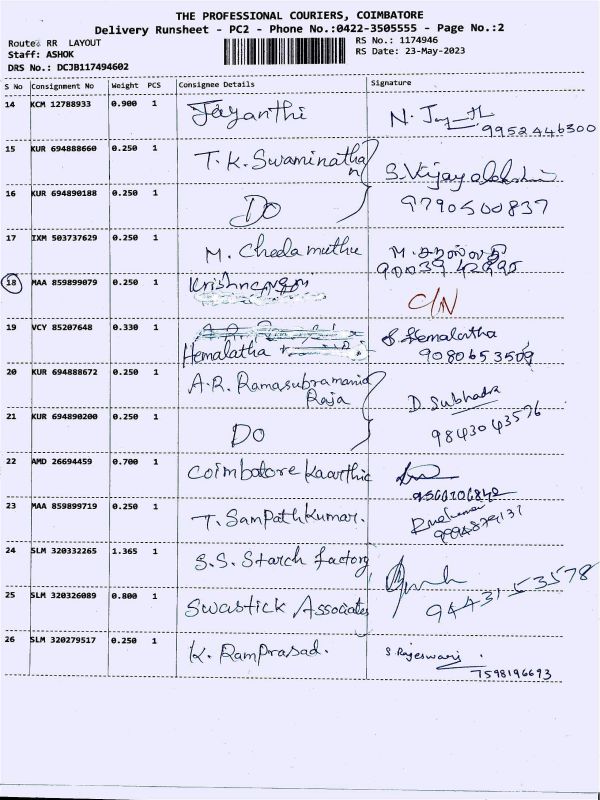 THE PROFESSIONAL COURIERS, COIMBATORE
Delivery Runsheet - PC2 - Phone No.:0422-3505555 - Page No.:2
Route: RR LAYOUT
RS No.: 1174946
Staff: ASHOK
RS Date: 23-May-2023
DRS No.: DCJB117494602
S No Consignment No Weight PCS Consignee Details Signature
14 KCM 12788933 0.900 1 Jayanthi N. 9952446300
15 KUR 694888660 0.250 1 T.K. Swaminathan S. Vijayalakshmi
16 KUR 694890188 0.250 1 DO 9790500837
17 IXM 503737629 0.250 1 M. Cheedamuthu M.
18 MAA 859899079 0.250 1 C/N
19 VCY 85207648 0.330 1 Hemalatha S. Hemalatha 9080653509
20 KUR 694888672 0.250 1 A.R. Ramasubramania Raja D. Subhadra
21 KUR 694890200 0.250 1 DO 9843043576
22 AMD 26694459 0.700 1 Coimbatore Kaarthic
23 MAA 859899719 0.250 1 T. SamPathKumar.
24 SLM 320332265 1.365 1 S.S. Starch factory
25 SLM 320326089 0.800 1 Swastick Associates 9443153578
26 SLM 320279517 0.250 1 K. RamPrasad. S. Rajeswari 7598196693